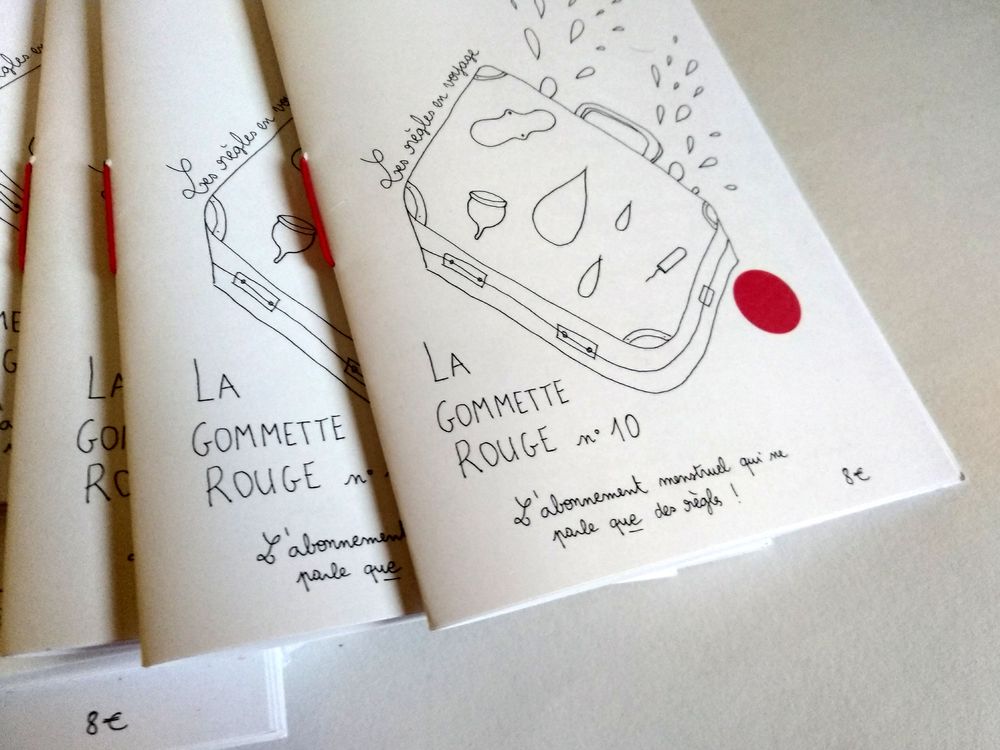 Les règles en voyage
LA
GOMMETTE
ROUGE n° 10
L'abonnement menstruel qui ne
parle que des règles !
8€
Les règles en
LA
GOMMETTE
ROUGE n°
L'abonnement
parle que
LA
GO
RO
8€